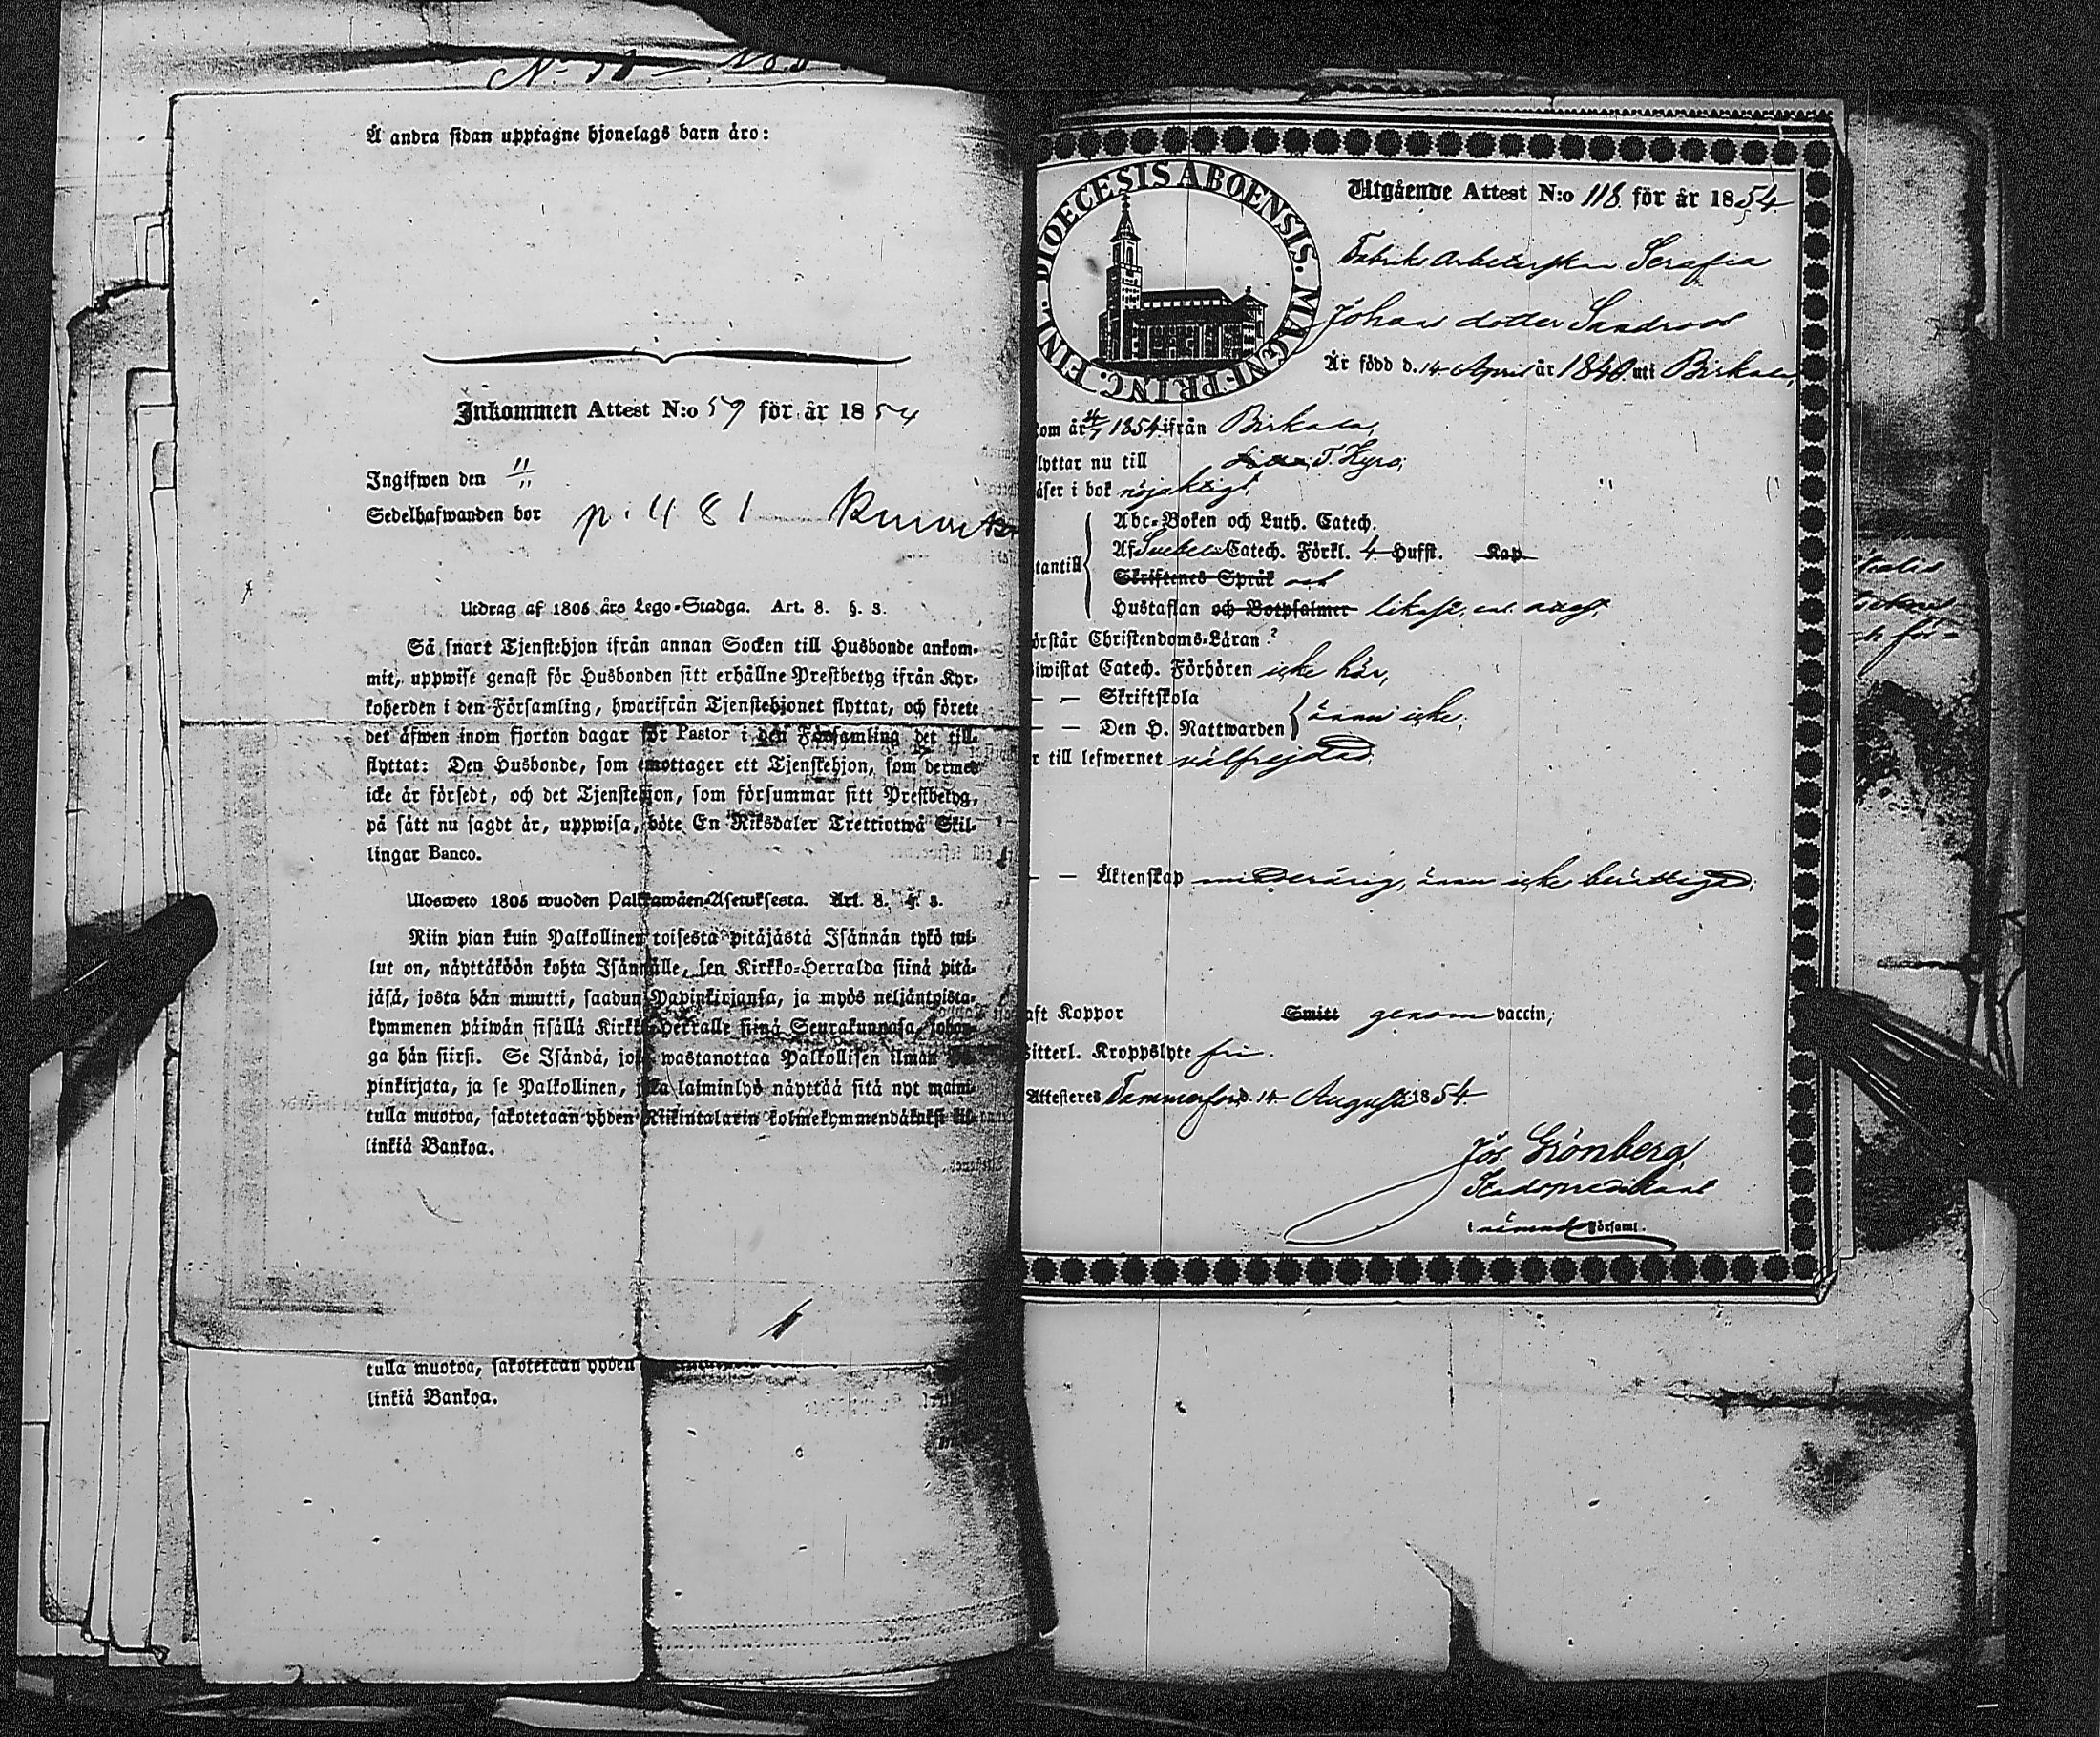 Å andra sidan upptagne hjonelags barn äro:
Inkommen Attest N:o 59 för år 1854
Ingifwen den
Sedelhafwanden bor p. 481
Utdrag af 1805 års Lego-Stadga. Art. 8. §. 3.
Så snart Tjenstehjon ifrån annan Socken till Husbonde ankom-
mit, uppwise genast för Husbonden sitt erhållne Prestbetyg ifrån Kyr-
koherden i den Församling, hwarifrån Tjenstehjonet flyttat, och förete
det äfwen inom fjorton dagar för Pastor i den Församling det till-
flyttat: Den Husbonde, som emottager ett Tjenstehjon, som dermed
icke är försedt, och det Tjenstehjon, som försummar sitt Prestbetyg,
på sätt nu sagdt är, uppwisa, böte En Riksdaler Trettiotwå Skil-
lingar Banco.
Uloswето 1805 wuoden Palkawäen-Asetuksesta. Art. 8. §. 3.
Niin pian kuin Palkollinen toisesta pitäjästä Isännän tykö tul-
lut on, näyttäköön kohta Isännälle, sen Kirkko-Herralda siinä pitä-
jäsä, josta hän muutti, saadun Papinkirjansa, ja myös neljäntoista-
kymmenen päiwän sisällä Kirkko-Herralle siinä Seurakunnasa, johon-
ga hän siirsi. Se Isändä, joka wastanottaa Palkollisen ilman Pa-
pinkirjata, ja se Palkollinen, joka laiminlyö näyttää sitä nyt maini-
tulla muotoa, sakotetaan yhden Riikintalarin kolmekymmendäkaksi kil-
linkiä Bankoa.
tulla muotoa, sakotetaan yhden
linkiä Bankoa.
DIOECESIS ABOENSIS. MAGNI PRINC. FINL.
Utgående Attest N:o 118 för år 1854.
Fabriks Arbeterskan Serafia
Johans dotter Sandroos
Är född d. 14 April år 1840 uti Birkala,
kom år 1854 ifrån Birkala,
flyttar nu till T. Kyro,
läser i bok nöjaktigt,
Abc-Boken och Luth. Catech.
utantill Af Svebelii Catech. Förkl. 4 Hufst. Kap
Skriftenes Språk och
Hustaflan och Botpsalmer likaså, enl. attest,
förstår Christendoms-Läran ?
biwistat Catech. Förhören icke här,
— — Skriftskola
— — Den H. Nattwarden ännu icke,
är till lefwernet välfrejdad,
— — Äktenskap minderårig, ännu icke berättigad,
haft Koppor Smitt genom vaccin,
Witterl. Kroppslyte fri.
Attesteres Tammerfors d. 14 Augusti 1854.
Jos. Grönberg,
Stadspredikant
i nämnde Församl.